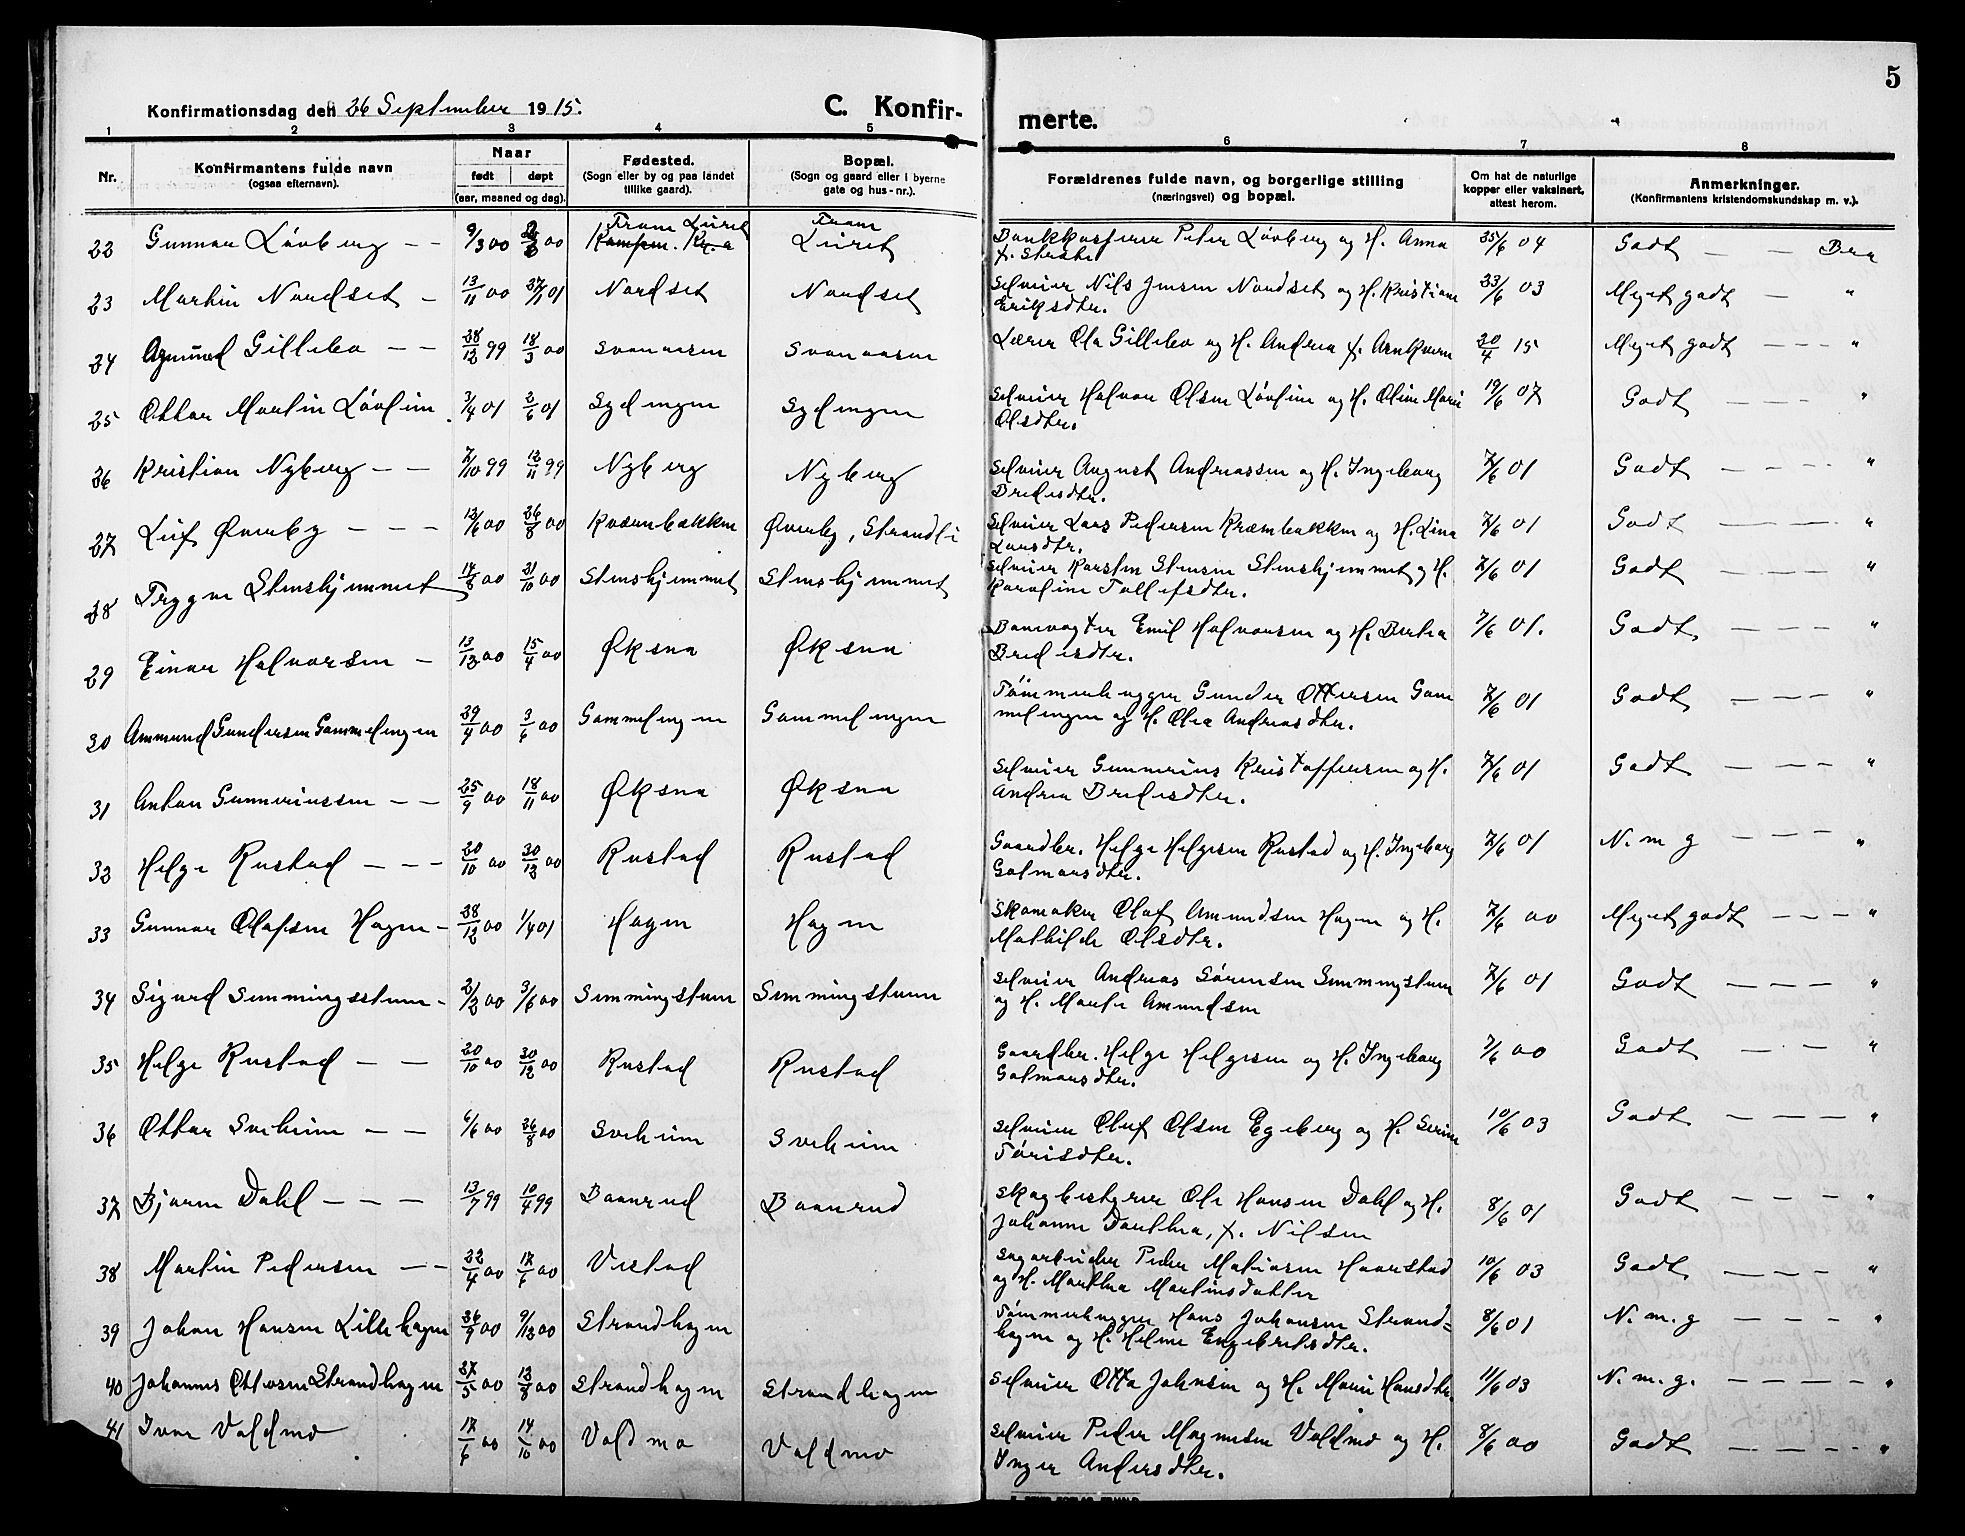 5
Konfirmationsdag den 26 September 1915.
C. Konfir-
merte.
1 2 3 4 5 6 7 8
Nr.
Konfirmantens fulde navn
(ogsaa efternavn).
Naar
født døpt
(aar, maaned og dag).
Fødested.
(Sogn eller by og paa landet
tillike gaard).
Bopæl.
(Sogn og gaard eller i byerne
gate og hus-nr.).
Forældrenes fulde navn, og borgerlige stilling
(næringsvei) og bopæl.
Om hat de naturlige
kopper eller vaksinert,
attest herom.
Anmerkninger.
(Konfirmantens kristendomskundskap m. v.).
22 Gunnar Løvberg — — 9/3 00 Luret Bankkasserer Peter Løvberg og H. Anna 25/6 04 Godt — — Bra
23 Martin Nordset — 13/11 00 27/1 01 Nordset Nordset Selveier Nils Jensen Nordset og H. Kristiane 23/6 03 Meget godt — "
Eriksdtr.
24 Amund Gillebo — — 28/12 99 18/3 00 Svenaasen Svenaasen Lærer Ola Gillebo og H. Andrea f. Arnkværn 20/4 15 Meget godt — — — "
25 Ottar Martin Løvlien 3/4 01 2/6 01 Sydengen Sydengen Selveier Halvor Olsen Løvlien og H. Oline Marie 19/6 07 Godt — — — "
Olsdtr.
26 Kristian Nyberg — — 7/10 99 12/11 99 Nyberg Nyberg Selveier August Andreassen og H. Ingeborg 7/6 01 Godt — — — "
Bredesdtr.
27 Leif Øverby — — — 12/6 00 26/8 00 Kværnbækken Øverby, Strandli Selveier Lars Pedersen Kværnbækken og H. Lina 7/6 01 Godt — — — "
Larsdtr.
28 Trygve Stenshjemmet 14/8 00 21/10 00 Stenshjemmet Stenshjemmet Selveier Karsten Stensen Stenshjemmet og H. 7/6 01 Godt — — — "
Karoline Tollefsdtr.
29 Einar Halvorsen — 13/12 00 15/4 00 Øksna Øksna Banevogter Emil Halvorsen og H. Berthea 7/6 01. Godt — — — "
Bredesdtr.
30 Ammund Gundersen Gammelengen 29/4 00 3/6 00 Gammelengen Gammelengen Tømmerhugger Gunder Ottersen Gam 7/6 01 Godt — — — "
melengen og H. Olea Andreasdtr.
31 Anton Gunneriussen — — 25/9 00 18/11 00 Øksna Øksna Selveier Gunnerius Kristoffersen og H. 7/6 01 Godt — — — "
Andrea Bredesdtr.
32 Helge Rustad — — — 20/10 00 30/12 00 Rustad Rustad Gaardbr. Helge Helgesen Rustad og H. Ingeborg 7/6 01 N. m g — — — "
Golmarsdtr.
33 Gunnar Olafsen Hagen — 28/12 00 1/4 01 Hagen Hagen Skomaker Olaf Amundsen Hagen og H. 7/6 00 Meget godt — — — "
Mathilde Olsdtr.
34 Sigurd Semmingsstuen — 2/2 00 3/6 00 Semmingstuen Semmingstuen Selveier Andreas Sørensen Semmingstuen 7/6 01 Godt — — — "
og H. Marte Amundsen
35 Helge Rustad — — 20/10 00 30/12 00 Rustad Rustad Gaardbr. Helge Helgesen og H. Ingeborg 7/6 00 Godt — — "
Golmarsdtr.
36 Ottar Sveheim — — 6/6 00 26/8 00 Sveheim Sveheim Selveier Oluf Olsen Egeberg og H. Serine 10/6 03 Godt — — — "
Tørisdtr.
37 Bjarne Dahl — — — 13/7 99 10/4 99 Baanrud Baanrud Skogbestyrer Ole Hansen Dahl og H. 8/6 01 Godt — — — "
Johanne Dorthea, f. Nilsen
38 Martin Pedersen — — 22/4 00 17/6 00 Vestad Sagarbeider Peder Matiasen Haarstad 10/6 03 Godt — — — "
og H. Marthea Martinsdatter
39 Johan Hansen Lillehagen 26/9 00 9/12 00 Strandhagen Tømmerhugger Hans Johansen Strand= 8/6 01 N. m. g — — — "
hagen og H. Helene Engebretsdtr.
40 Johannes Ottosen Strandhagen 27/5 00 12/8 00 Strandhagen Strandhagen Selveier Otto Johnsen og H. Marie Hansdtr. 11/6 03 N. m. g. — — — — "
41 Ivar Voldmo 17/6 00 14/10 00 Voldmo Voldmo Selveier Peder Magnesen Voldmo og H. 8/6 00 Godt — — — "
Inger Andersdtr.